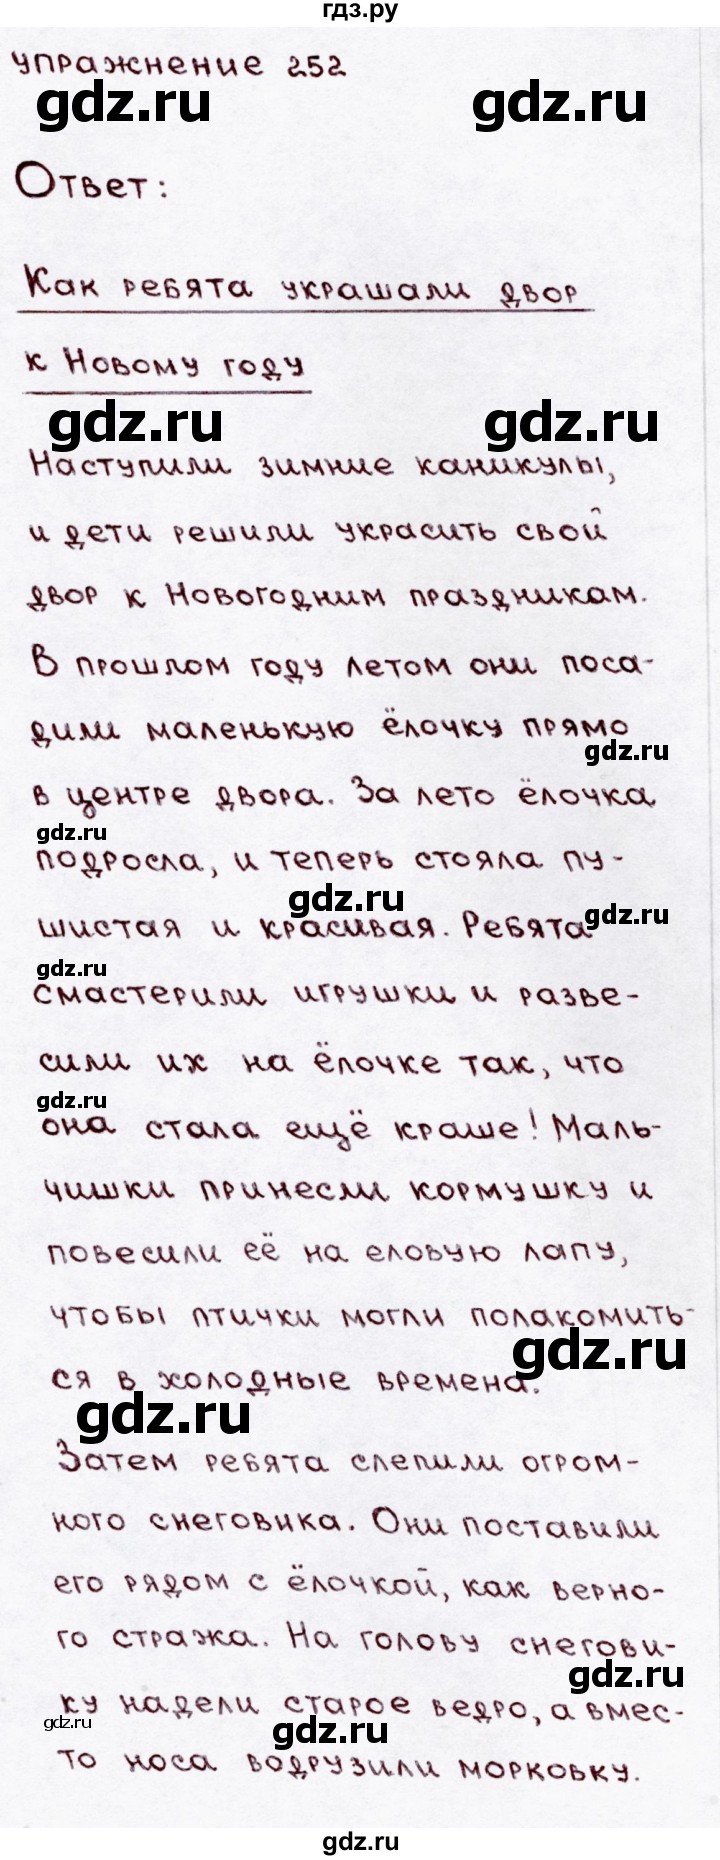 гдз.ру
упражнение 252
gdz.ru gdz.ru
Ответ:
Как ребята украшали двор
к Новому году
gdz.ru gdz.ru
Наступили зимние каникулы,
и дети решили украсить свой
двор к Новогодним праздникам.
В прошлом году летом они поса-
дили маленькую ёлочку прямо
gdz.ru
в центре двора. За лето ёлочка
gdz.ru
подросла, и теперь стояла пу-
gdz.ru gdz.ru
шистая и красивая. Ребята
gdz.ru
смастерили игрушки и разве-
сили их на ёлочке так, что
gdz.ru
она стала ещё краше! Маль-
чишки принесли кормушку и
повесили её на еловую лапу,
чтобы птички могли полакомить-
gdz.ru
ся в холодные времена.
gdz.ru
Затем ребята слепили огром-
ного снеговика. Они поставили
его рядом с ёлочкой, как верно-
го стража. На голову снегови-
gdz.ru
ку надели старое ведро, а вмес-
gdz.ru gdz.ru
то носа водрузили морковку.
gdz.ru